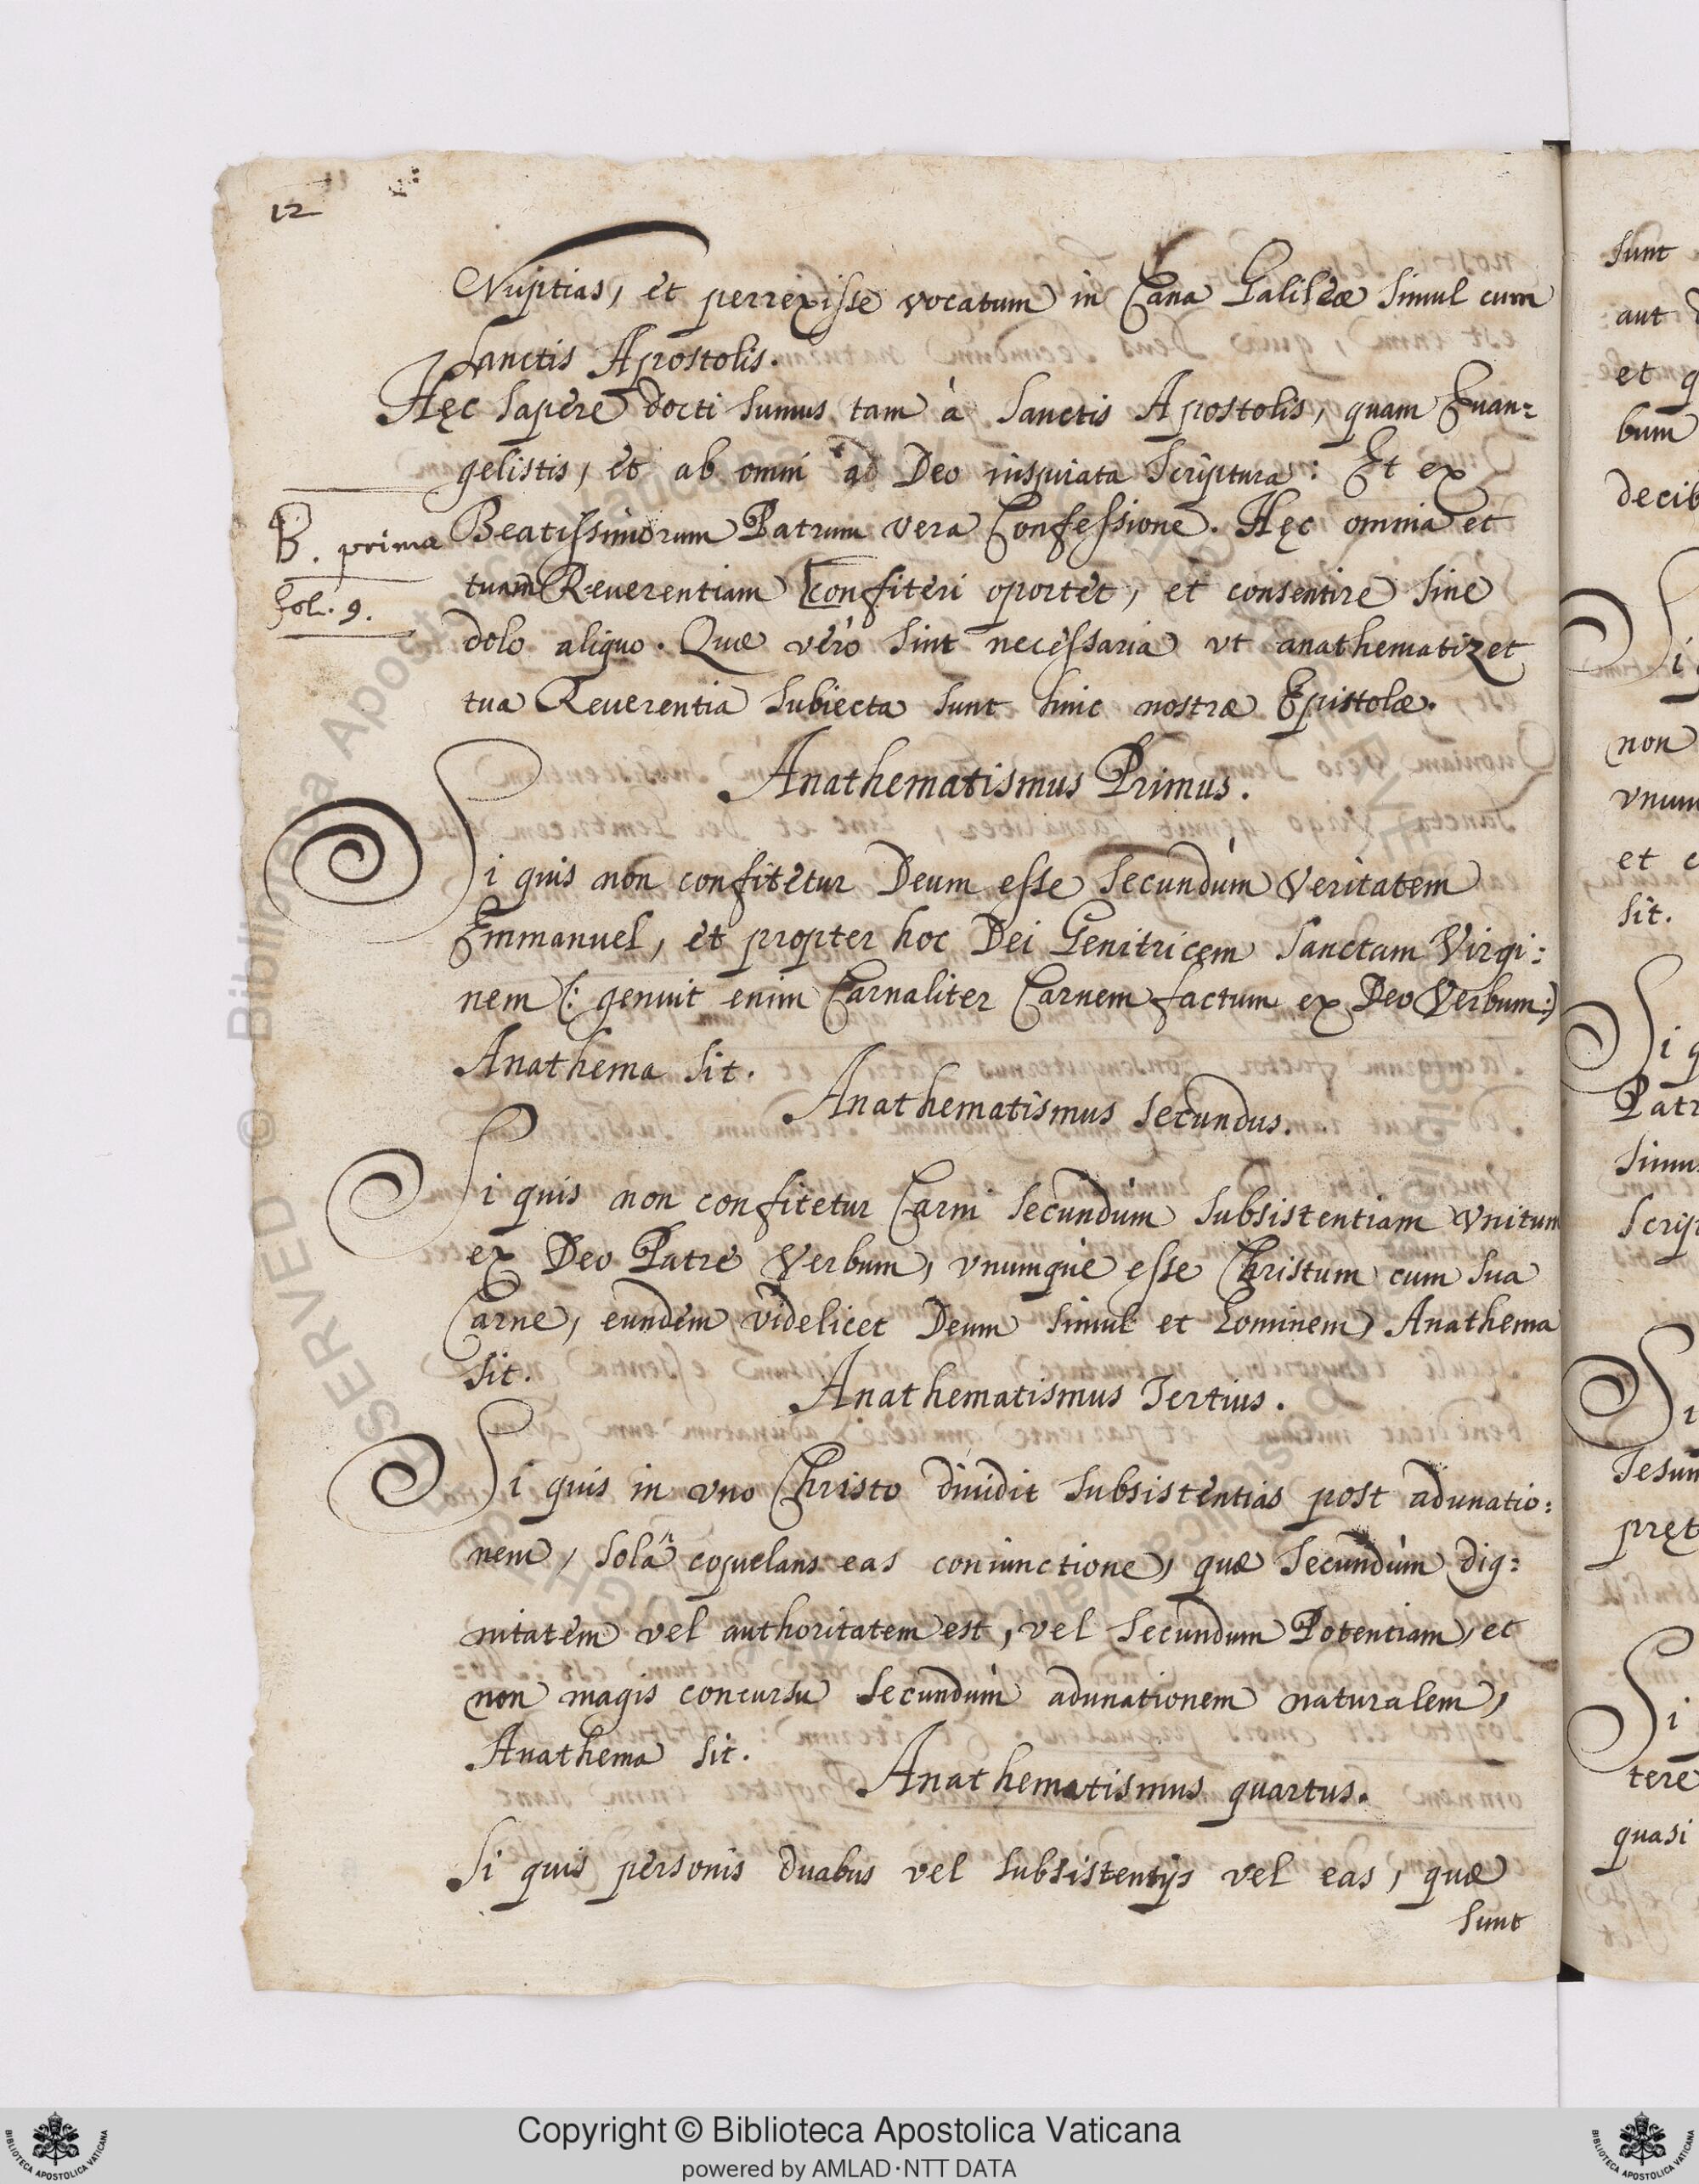 12
Nuptias, et perrexisse vocatum in Cana Galilææ simul cum
Sanctis Apostolis.
Hęc sapere docti sumus tam à Sanctis Apostolis, quam Euan=
gelistis, et ab omni a Deo inspirata Scriptura: Et ex
B. prima
fol. 9.
Beatissimorum Patrum vera Confessione. Hęc omnia et
tuam Reuerentiam [confiteri oportet, et consentire sine
dolo aliquo. Quæ vèro sint necessaria vt anathematizet
tua Reuerentia subiecta sunt huic nostræ Epistolæ.
Anathematismus Primus.
Si quis non confitetur Deum esse secundùm Veritatem
Emmanuel, et propter hoc Dei Genitricem Sanctam Virgi:
nem (: genuit enim Carnaliter Carnem factum ex Deo Verbum:)
Anathema sit.
Anathematismus secundus.
Si quis non confitetur Carni secundùm subsistentiam vnitum
ex Deo Patre Verbum, vnumque esse Christum cum sua
Carne, eundem videlicet Deum simul et hominem, Anathema
sit.
Anathematismus Tertius.
Si quis in vno Christo diuidit subsistentias post adunatio:
nem, solâ copulans eas coniunctione, quæ secundùm dig:
nitatem vel authoritatem est, vel secundum Potentiam, et
non magis concursu secundùm adunationem naturalem,
Anathema sit.
Anathematismus quartus.
Si quis personis duabus vel subsistentijs vel eas, quæ
sunt
sunt
aut
et q
bum
decib
Si
non
vnum
et e
sit.
Si q
Patr
simu
Script
Si
Iesum
pręt
Si
tere
quasi
Copyright © Biblioteca Apostolica Vaticana
powered by AMLAD·NTT DATA
BIBLIOTECA APOSTOLICA VATICANA
BIBLIOTECA APOSTOLICA VATICANA